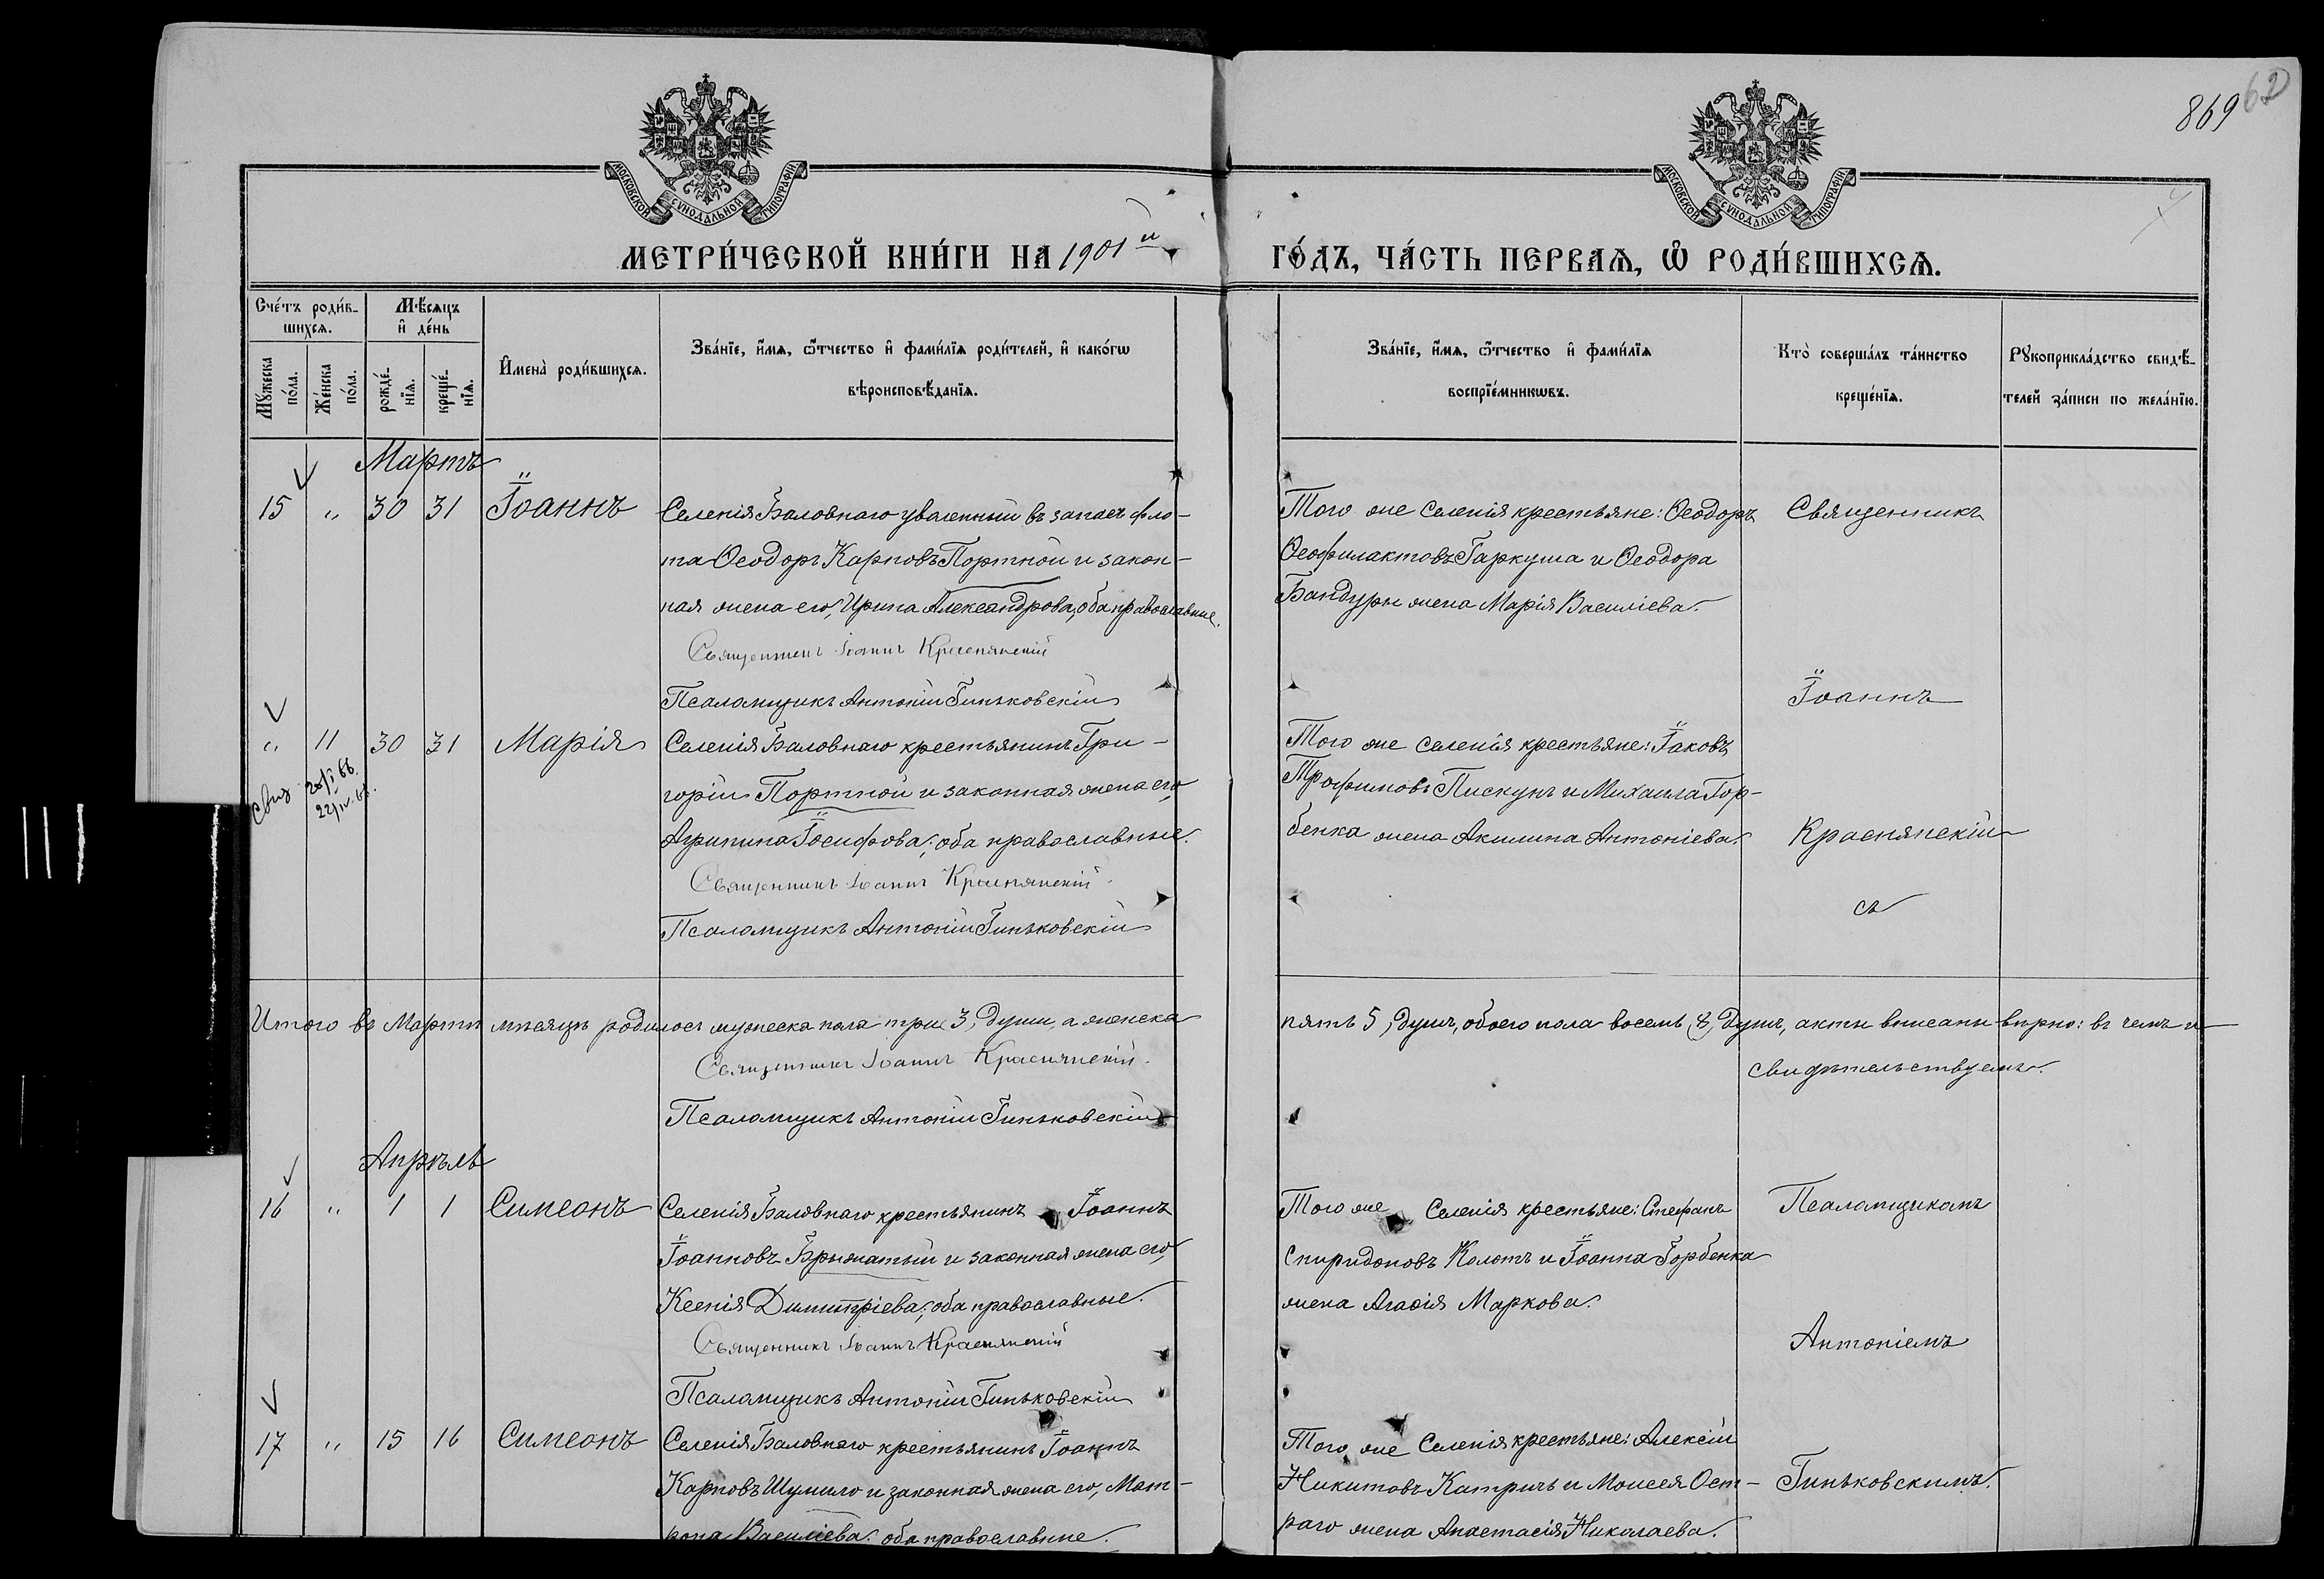 869 62
МОСКОВСКОЙ СѴНОДАЛЬНОЙ ТИПОГРАФІИ
МОСКОВСКОЙ СѴНОДАЛЬНОЙ ТИПОГРАФІИ
МЕТРИ́ЧЕСКОЙ КНИ́ГИ НА 1901 й ГО́ДЪ, ЧА́СТЬ ПЕРВАѦ, Ѡ РОДИ́ВШИХСѦ.
Сче́тъ роди́в-
шихсѧ.
Мꙋ́жеска
по́ла.
Же́нска
по́ла.
Мѣ́сѧцъ
и҆ де́нь
рожде́-
нїѧ.
креще́-
нїѧ.
И҆мена̀ роди́вшихсѧ.
Зва́нїе, и҆́мѧ, ѻ҆́тчество и҆ фами́лїѧ роди́телей, и҆ како́гѡ
вѣроисповѣ́данїѧ.
Зва́нїе, и҆́мѧ, ѻ҆́тчество и҆ фами́лїѧ
воспрїе́мникѡвъ.
Кто̀ соверша́лъ та́инство
креще́нїѧ.
Рꙋкоприкла́дство свидѣ́-
телей за́писи по жела́нїю.
Мартъ
15 " 30 31 Іоаннъ
Селенія Баловнаго уволенный въ запасъ фло-
та Ѳеодоръ Карповъ Портной и закон-
ная жена его, Ирина Александрова; оба православные.
Священникъ Іоаннъ Краснянскій
Псаломщикъ Антоній Гиньковскій
Того же селенія крестьяне: Ѳеодоръ
Ѳеофилактовъ Гаркуша и Ѳеодора
Бандуры жена Марія Василіева.
Священникъ
Іоаннъ
" 11 30 31 Марія
свиз 22/IV.
Селенія Баловнаго крестьянинъ Гри-
горій Портной и законная жена его,
Агрипина Іосифова; оба православные.
Священникъ Іоаннъ Краснянскій
Псаломщикъ Антоній Гиньковскій
Того же селенія крестьяне: Іаковъ
Трофимовъ Пискунъ и Михаила Гор-
бенка жена Акилина Антоніева.
Краснянскій
съ
Итого въ Мартѣ мѣсяцѣ родилось мужеска пола три 3, души, а женска пять 5, душъ, обоего пола восемь, 8, душъ, акты вписаны вѣрно: въ чемъ и
свидѣтельствуемъ.
Священникъ Іоаннъ Краснянскій
Псаломщикъ Антоній Гиньковскій
Апрѣль
16 " 1 1 Симеонъ
Селенія Баловнаго крестьянинъ Іоаннъ
Іоанновъ Брыжатый и законная жена его,
Ксенія Димитріева; оба православные.
Священникъ Іоаннъ Краснянскій
Псаломщикъ Антоній Гиньковскій
Того же Селенія крестьяне: Стефанъ
Спиридоновъ Колотъ и Іоанна Горбенка
жена Агафія Маркова.
Псаломщикомъ
Антоніемъ
17 " 15 16 Симеонъ
Селенія Баловнаго крестьянинъ Іоаннъ
Карповъ Шумило и законная жена его, Мат-
рона Василіева. оба православные.
Того же Селенія крестьяне: Алексій
Никитовъ Катричъ и Моисея Ост-
раго жена Анастасія Николаева.
Гиньковскимъ.